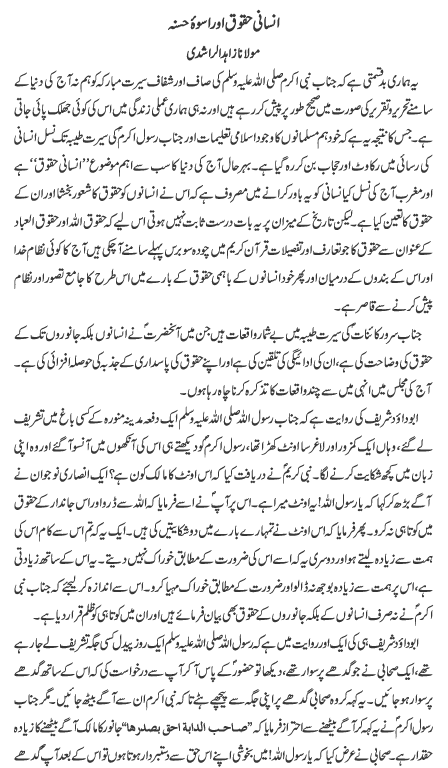 انسانی حقوق اور اسوۂ حسنہ
مولانا زاہد الراشدی
یہ ہماری بد قسمتی ہے کہ جناب نبی اکرم صلی اللہ علیہ وسلم کی صاف اور شفاف سیرت مبارکہ کو ہم نہ آج کی دنیا کے
سامنے تحریر و تقریر کی صورت میں صحیح طور پر پیش کر رہے ہیں اور نہ ہی ہماری عملی زندگی میں اس کی کوئی جھلک پائی جاتی
ہے۔ جس کا نتیجہ یہ ہے کہ خود ہم مسلمانوں کا وجود اسلامی تعلیمات اور جناب رسول اکرم کی سیرت طیبہ تک نسل انسانی
کی رسائی میں رکاوٹ اور حجاب بن کر رہ گیا ہے۔ بہرحال آج کی دنیا کا سب سے اہم موضوع ’’انسانی حقوق‘‘ ہے
اور مغرب آج کی نسل کیا انسانی کو یہ باور کرانے میں مصروف ہے کہ اس نے انسانوں کو حقوق کا شعور بخشا اور ان کے
حقوق کا تعین کیا ہے۔ لیکن تاریخ کے میزان پر یہ بات درست ثابت نہیں ہوتی اس لیے کہ حقوق اللہ اور حقوق العباد
کے عنوان سے حقوق کا جو تعارف اور تفصیلات قرآن کریم میں چودہ سو برس پہلے سامنے آ چکی ہیں آج کا کوئی نظام خدا
اور اس کے بندوں کے درمیان اور پھر خود انسانوں کے باہمی حقوق کے بارے میں اس طرح کا جامع تصور اور نظام
پیش کرنے سے قاصر ہے۔
جناب سرور کائنات کی سیرت طیبہ میں بے شمار واقعات ہیں جن میں آنحضرتؐ نے انسانوں بلکہ جانوروں تک کے
حقوق کی وضاحت کی ہے، ان کی ادائیگی کی تلقین کی ہے اور اپنے حقوق کی پاسداری کے جذبہ کی حوصلہ افزائی کی ہے۔
آج کی مجلس میں انہی میں سے چند واقعات کا تذکرہ کرنا چاہ رہا ہوں۔
ابوداؤد شریف کی روایت ہے کہ جناب رسول اللہ صلی اللہ علیہ وسلم ایک دفعہ مدینہ منورہ کے کسی باغ میں تشریف
لے گئے، وہاں ایک کمزور اور لاغر سا اونٹ کھڑا تھا، رسول اکرمؐ کو دیکھتے ہی اس کی آنکھوں میں آنسو آ گئے اور وہ اپنی
زبان میں کچھ شکایت کرنے لگا۔ نبی کریمؐ نے دریافت کیا کہ اس اونٹ کا مالک کون ہے؟ ایک انصاری نوجوان نے
آگے بڑھ کر کہا کہ یا رسول اللہ! یہ اونٹ میرا ہے۔ اس پر آپؐ نے اسے فرمایا کہ اللہ سے ڈرو اور اس جاندار کے حقوق
میں کوتاہی نہ کرو۔ پھر فرمایا کہ اس اونٹ نے تمہارے بارے میں دو شکایتیں کی ہیں۔ ایک یہ کہ تم اس سے کام اس کی
ہمت سے زیادہ لیتے ہو اور دوسری یہ کہ اسے اس کی ضرورت کے مطابق خوراک نہیں دیتے۔ یہ اس کے ساتھ زیادتی
ہے، اس پر ہمت سے زیادہ بوجھ نہ ڈالو اور ضرورت کے مطابق خوراک مہیا کرو۔ اس سے اندازہ کر لیجئے کہ جناب نبی
اکرمؐ نے نہ صرف انسانوں کے بلکہ جانوروں کے حقوق بھی بیان فرمائے ہیں اور ان میں کوتاہی کو ظلم قرار دیا ہے۔
ابوداؤد شریف ہی کی ایک اور روایت میں ہے کہ رسول اللہ صلی اللہ علیہ وسلم ایک روز پیدل کسی جگہ تشریف لے جا رہے
تھے، ایک صحابی نے جو گدھے پر سوار تھے، دیکھا تو حضورؐ کے پاس آ کر آپ سے درخواست کی کہ اس کے ساتھ گدھے
پر سوار ہو جائیں۔ یہ کہہ کر وہ صحابی گدھے پر اپنی جگہ سے پیچھے ہٹے تا کہ نبی اکرم ان سے آگے بیٹھ جائیں۔ مگر جناب
رسول اکرمؐ نے یہ کہہ کر آگے بیٹھنے سے احتراز فرمایا کہ ’’صاحب الدابة احق بصدرها‘‘ جانور کا مالک آگے بیٹھنے کا زیادہ
حقدار ہے۔ صحابی نے عرض کیا کہ یا رسول اللہ! میں بخوشی اپنے اس حق سے دستبردار ہوتا ہوں تو اس کے بعد آپ گدھے